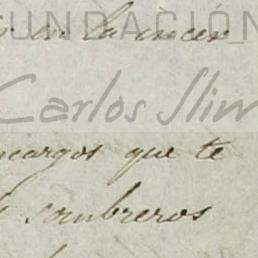 FUNDACIÓN
la incer
Carlos Slim
ncargos que te
sombreros